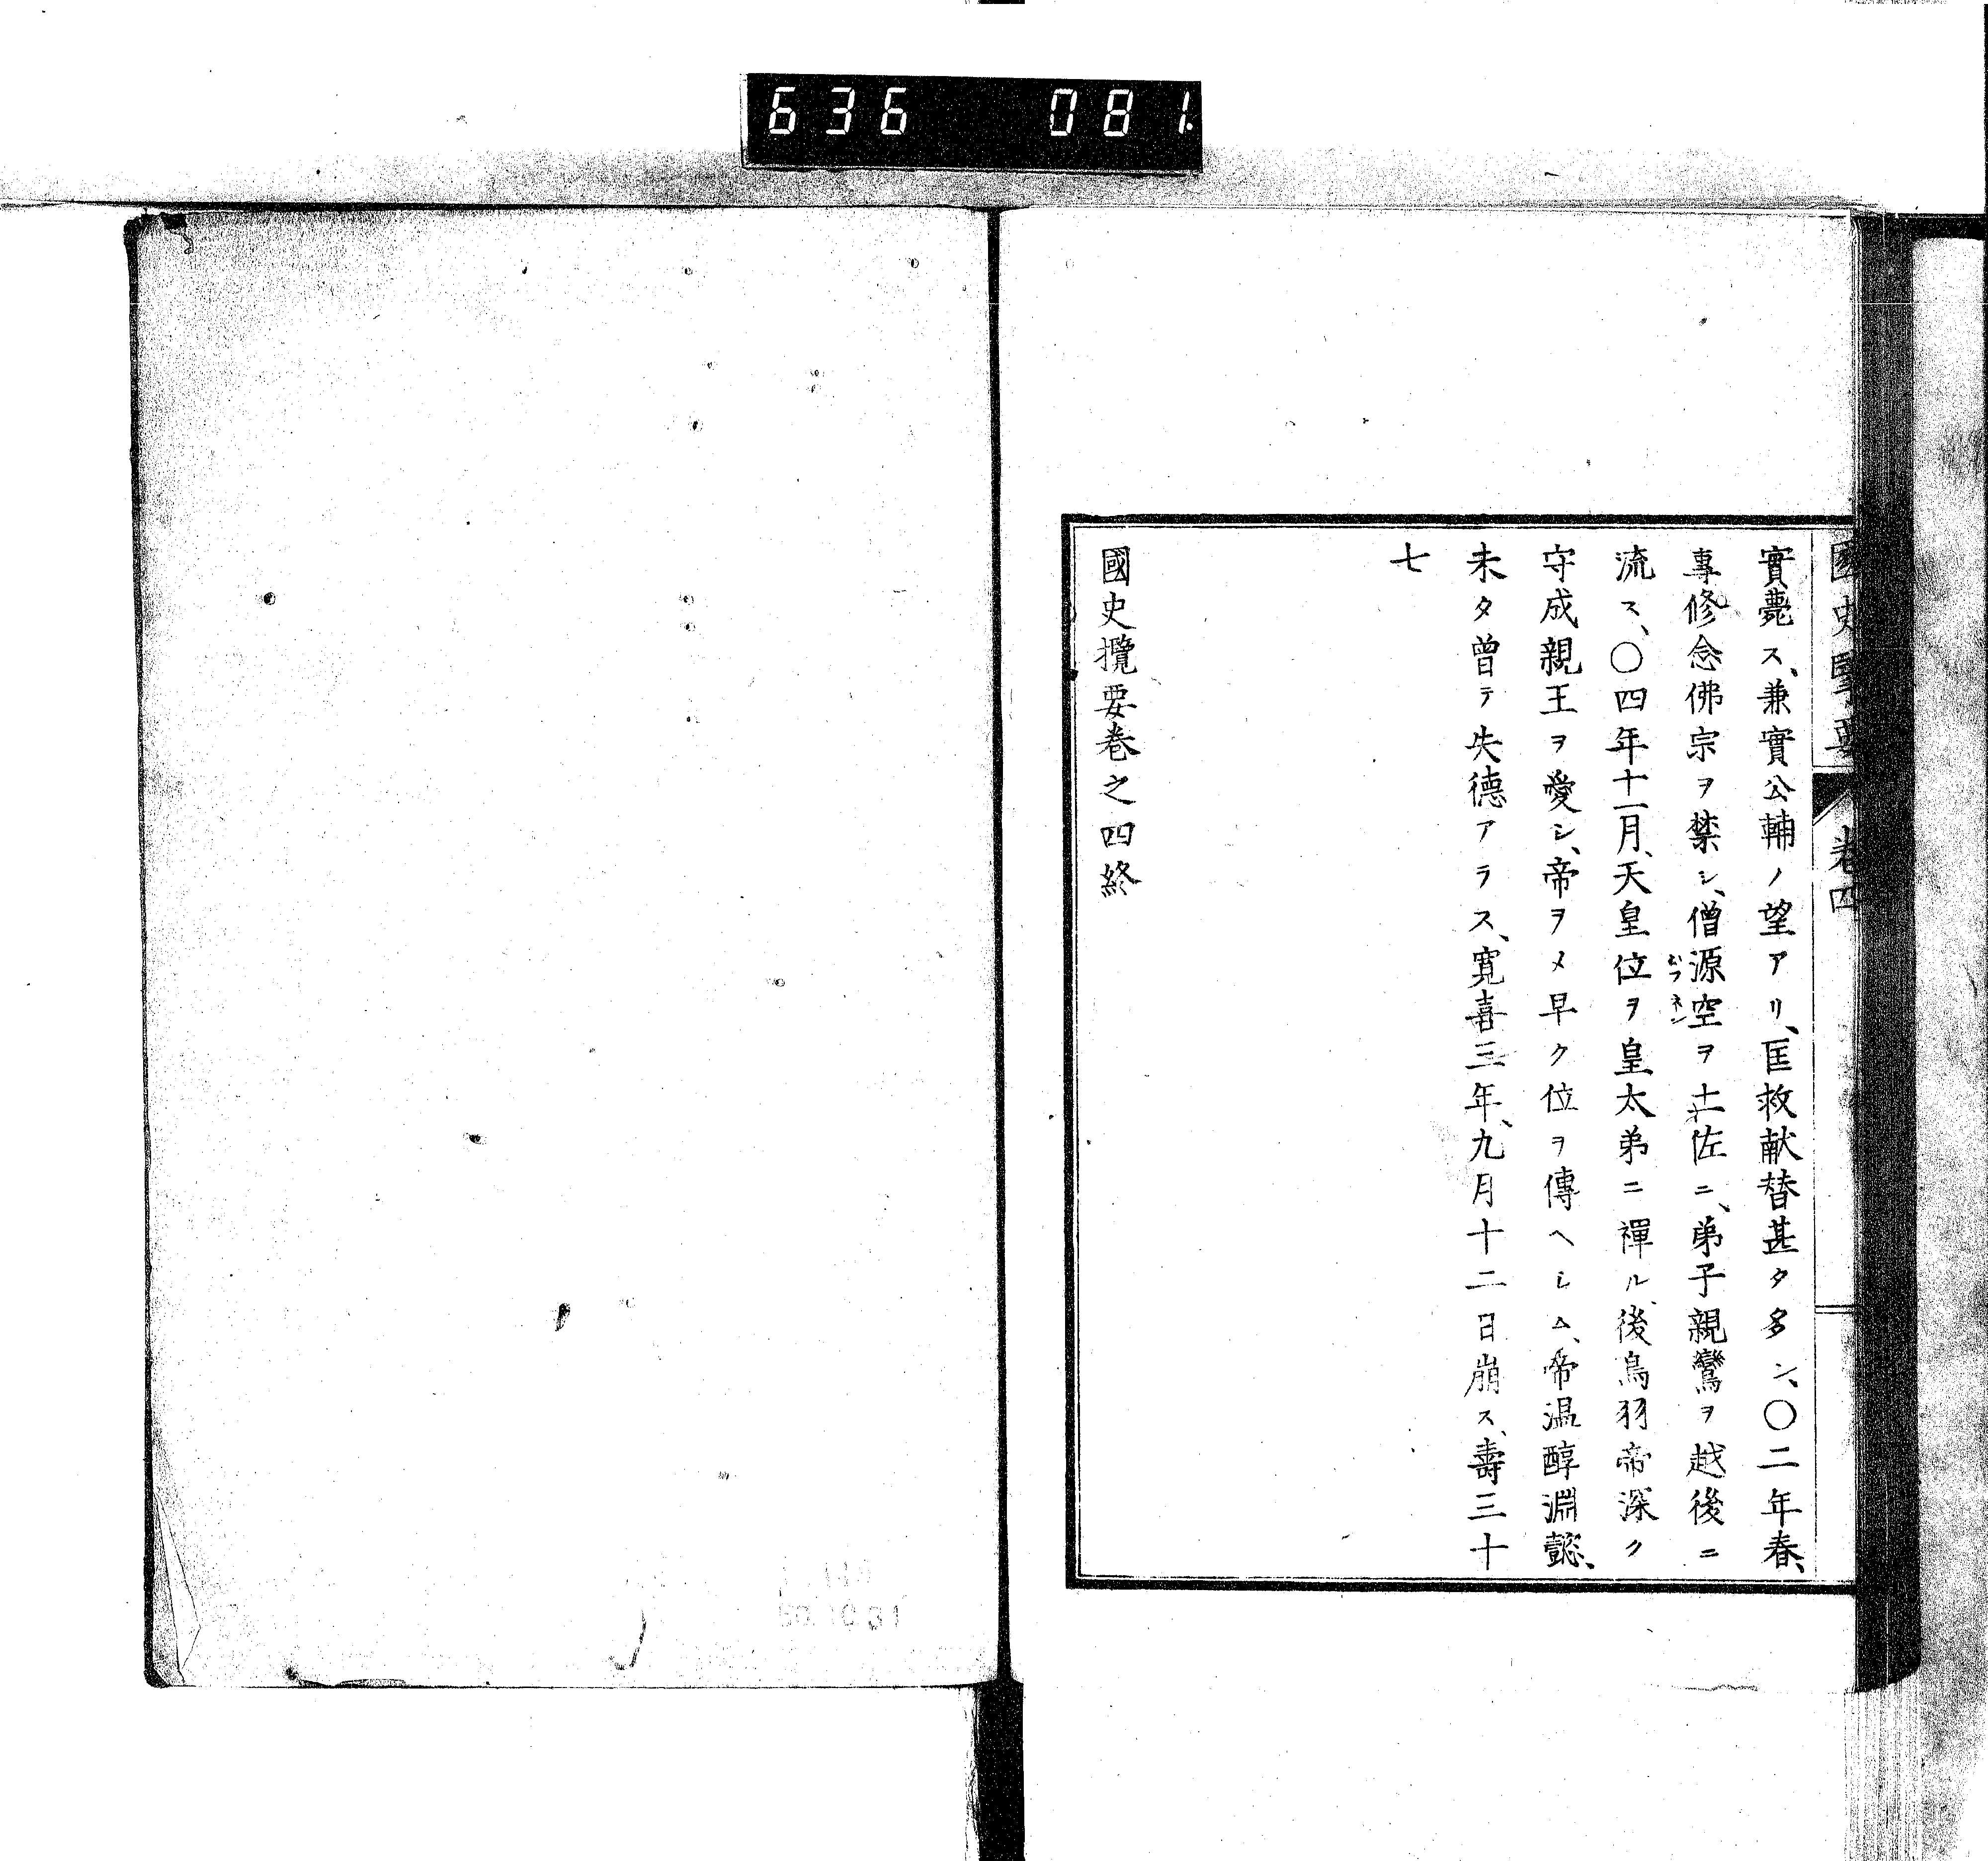 636 081
國史擥要 卷四
實薨ス、兼實公輔ノ望アリ、匡救献替甚タ多シ、〇二年春、
專修念佛宗ヲ禁シ、僧源空ヲ土佐ニ、弟子親鸞ヲ越後ニ
流ス、〇四年十一月、天皇位ヲ皇太弟ニ禪ル、後鳥羽帝深ク
守成親王ヲ愛シ、帝ヲメ早ク位ヲ傳ヘシム、帝温醇淵懿、
未タ曾テ失德アラス、寛喜三年、九月十二日崩ス、壽三十
七
國史攬要卷之四終